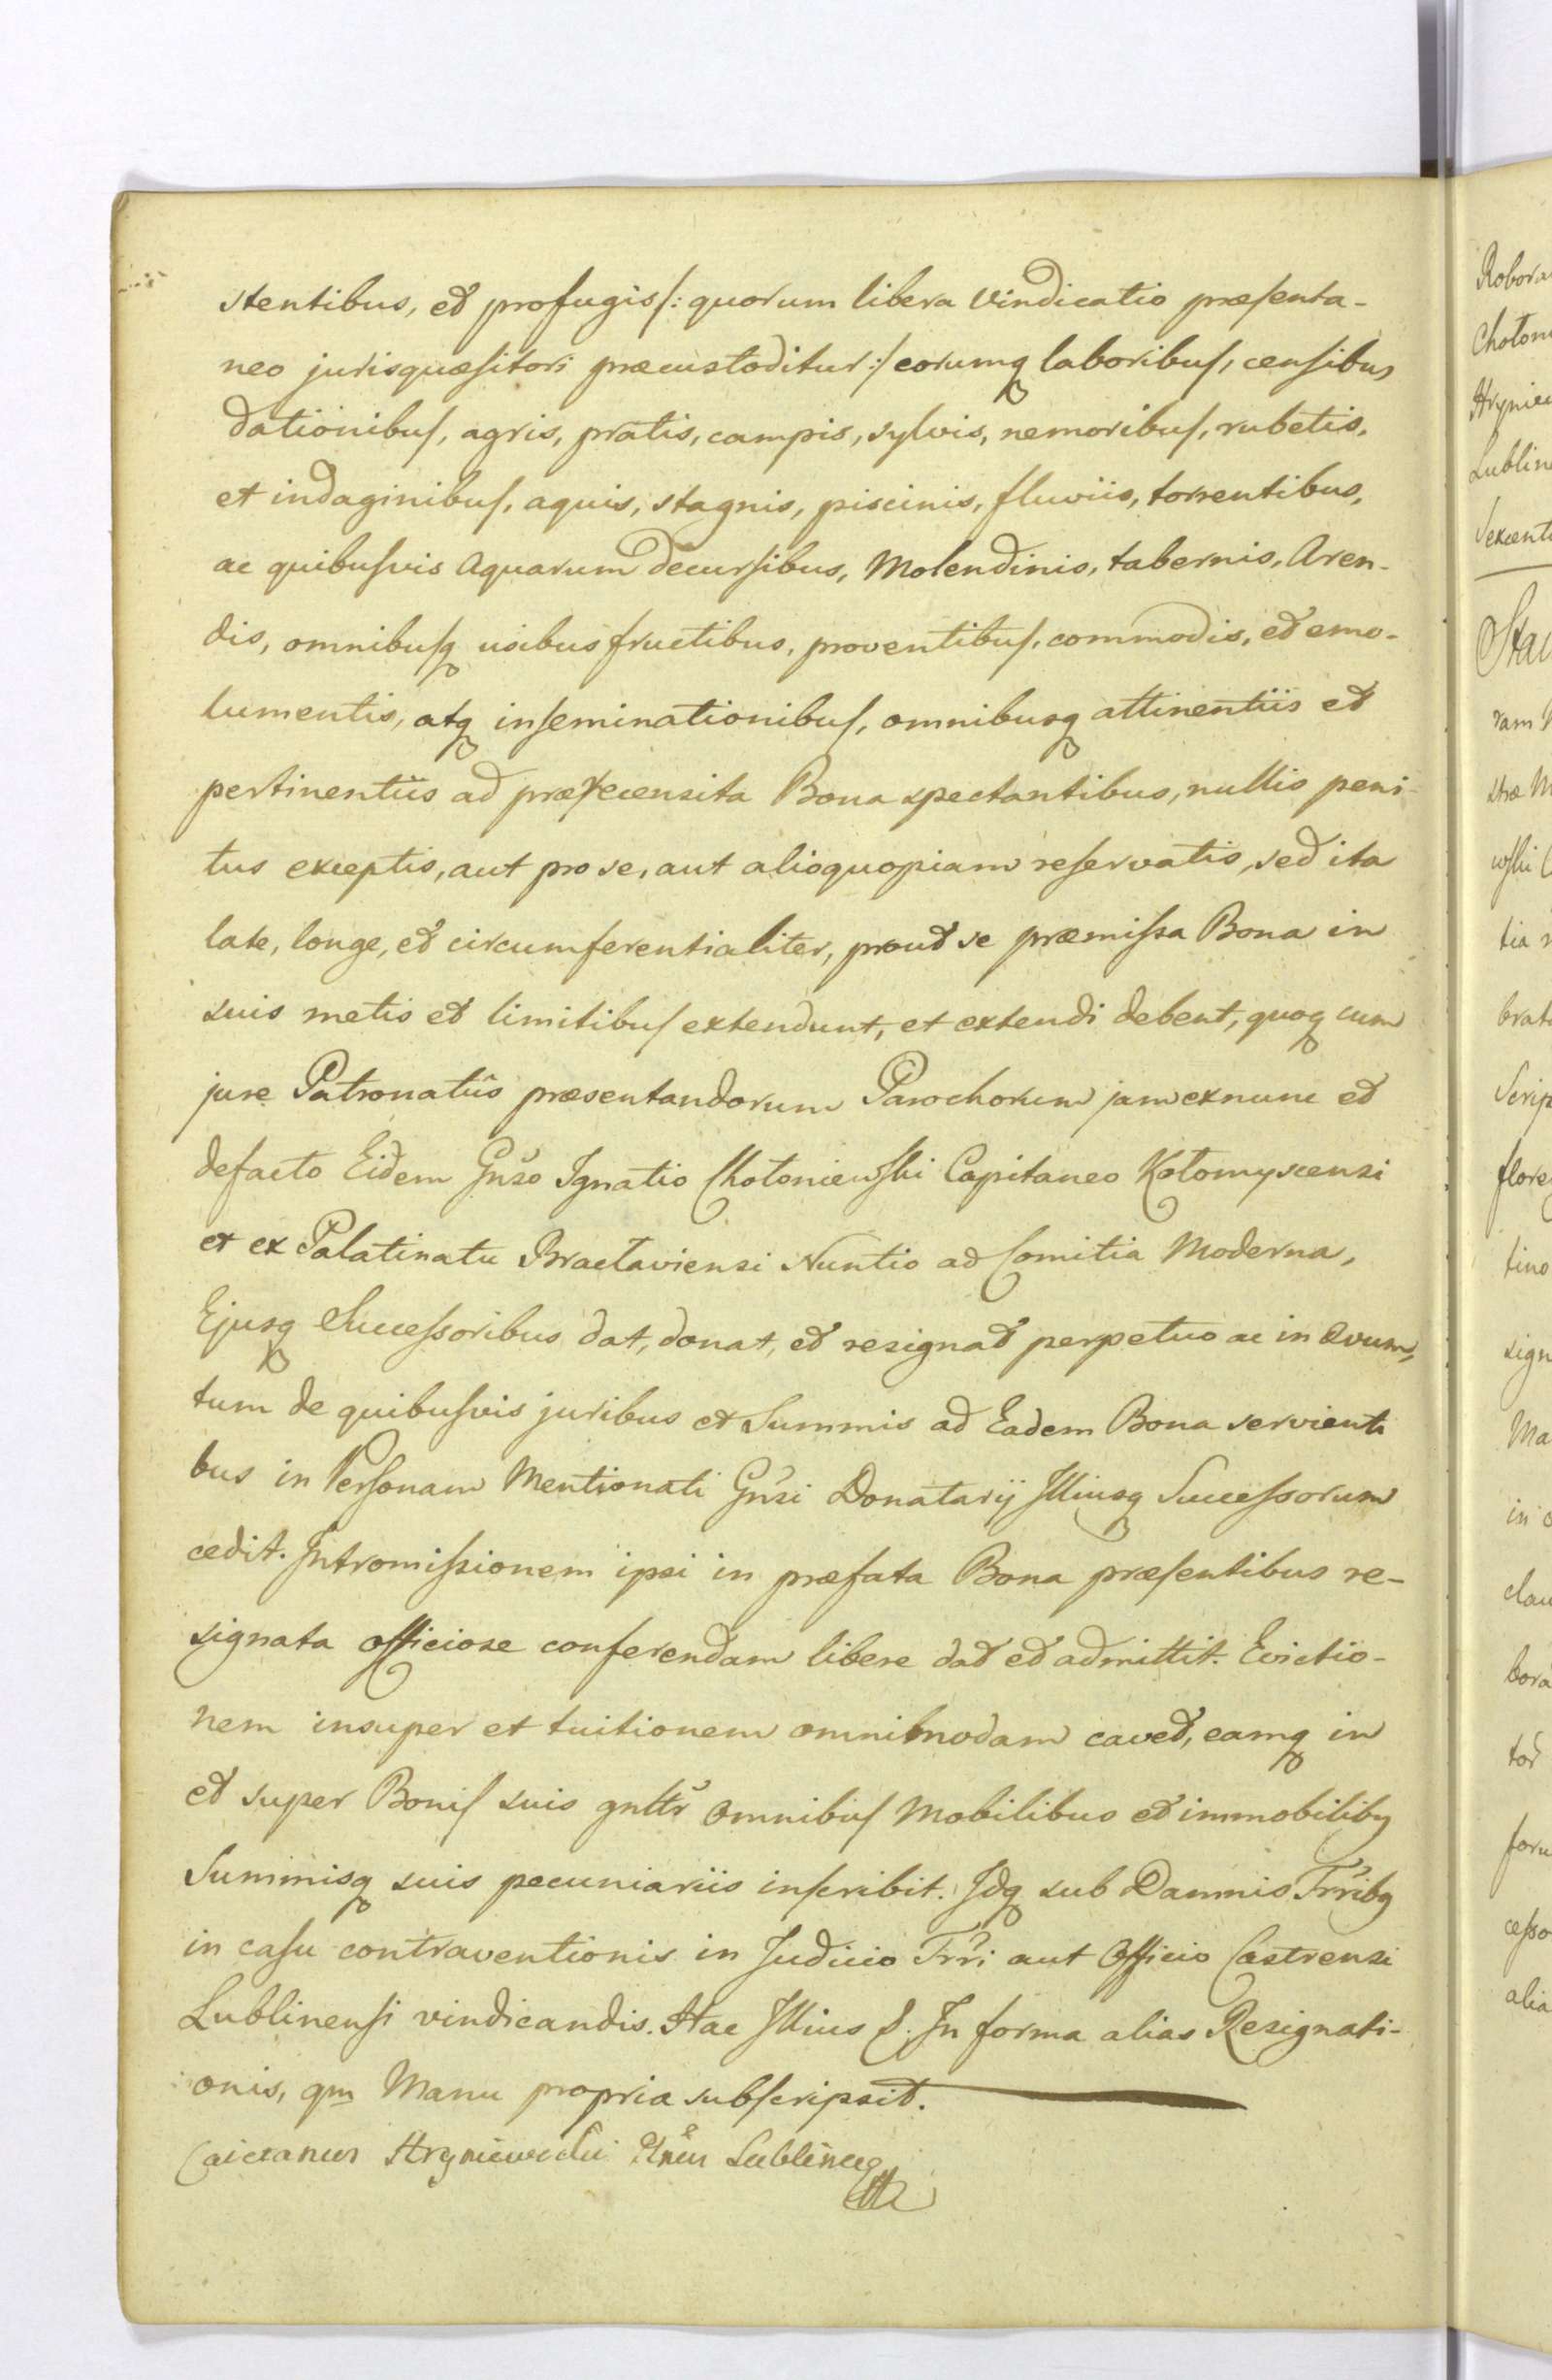 stentibus, et profugis /: quorum libera vindicatio præsenta-
neo jurisquæsitori præcustoditur :/ eorumq laboribus, censibus
dationibus, agris, pratis, campis, sylvis, nemoribus, rubetis,
et indaginibus, aquis, stagnis, piscinis, fluviis, torrentibus,
ac quibusvis Aquarum decursibus, Molendinis, tabernis, Aren-
dis, omnibusq usibus fructibus, proventibus, commodis, et emo-
lumentis, atq inseminationibus, omnibusq attinentiis et
pertinentiis ad præxecensita Bona spectantibus, nullis peni-
tus exceptis, aut pro se, aut alioquopiam reservatis, sed ita
late, longe, et circumferentialiter, prout se præmissa Bona in
suis metis et limitibus extendunt, et extendi debent, quoq cum
jure Patronatûs præsentandorum Parochorum jam exnunc et
defacto Eidem Gnso Ignatio Chołoniewski Capitaneo Kołomyscensi
et ex Palatinatu Bracłaviensi Nuntio ad Comitia Moderna,
Ejusq Successoribus dat, donat, et resignat perpetuo ac in ævum,
tum de quibusvis juribus et Summis ad Eadem Bona servienti
bus in Personam Mentionati Gnsi Donatarij Illiusq Successorum
cedit. Intromissionem ipsi in præfata Bona præsentibus re-
signata officiose conferendam libere dat et admittit. Evictio-
nem insuper et tuitionem omnibmodam cavet, eamq in
et super Bonis suis gnltr omnibus Mobilibus et immobiliby
Summisq suis pecuniariis inscribit. Idq sub Damnis Trriby
in casu contraventionis in Judicio Trri aut Officio Castrensi
Lublinensi vindicandis. Hac Illius S. In forma alias Resignati-
onis, qm Manu propria subscripsit.
Caietanus Hryniewiecki Lublineñ
Robora
Chołon
Hryniew
Lublin
Sexcent
Stan
ram
stræ M
wski
tia
brat
Scrip
flore
tino
sign
Ma
in
clau
bora
tor
foru
cesso
alia